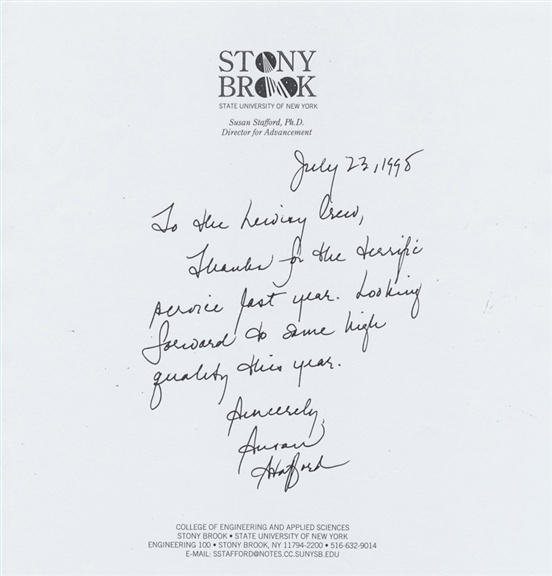 STONY
BROOK
STATE UNIVERSITY OF NEW YORK
Susan Stafford, Ph.D.
Director for Advancement
July 23, 1998
To the Crew,
Thanks for the terrific
service last year. Looking
forward to same high
quality this year.
Sincerely,
Susan
Stafford
COLLEGE OF ENGINEERING AND APPLIED SCIENCES
STONY BROOK • STATE UNIVERSITY OF NEW YORK
ENGINEERING 100 • STONY BROOK, NY 11794-2200 • 516-632-9014
E-MAIL: SSTAFFORD@NOTES.CC.SUNYSB.EDU